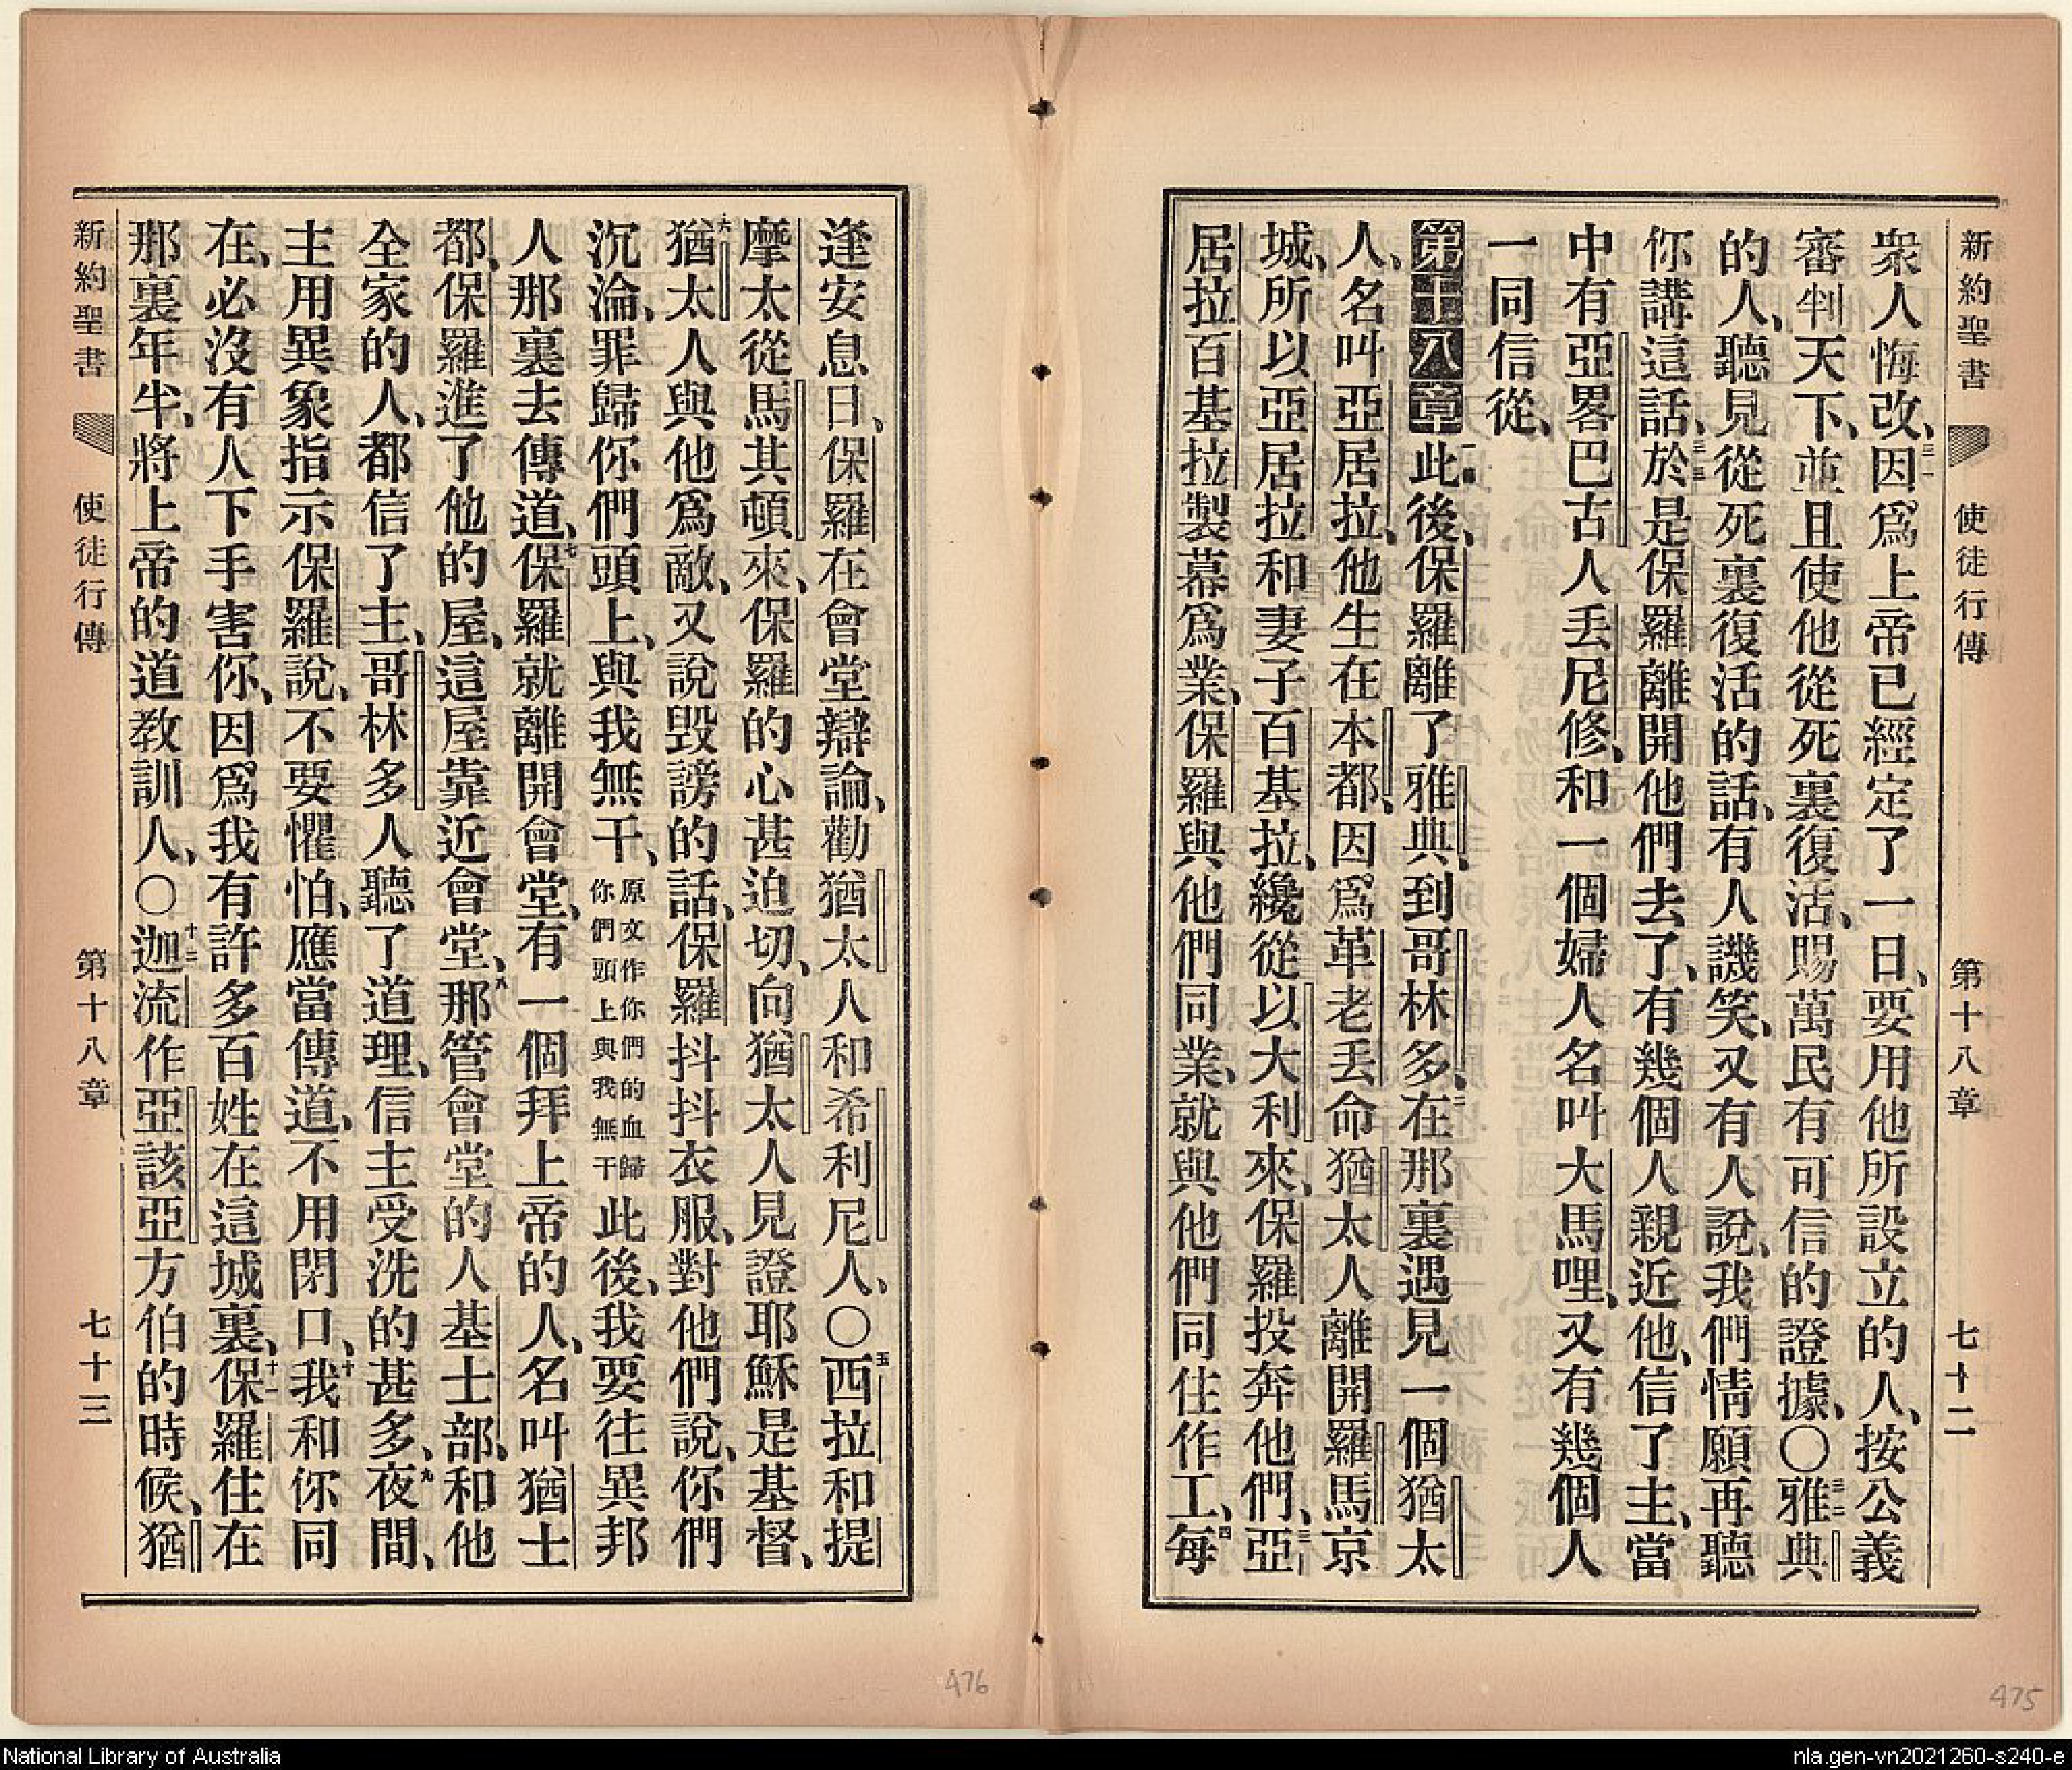 新約聖書 使徒行傳 第十八章 七十二
衆人悔改、三一因爲上帝已經定了一日、要用他所設立的人、按公義
審判天下、並且使他從死裏復活、賜萬民有可信的證據、〇三二雅典
的人、聽見從死裏復活的話、有人譏笑、又有人說、我們情願再聽
你講這話、三三於是保羅離開他們去了、三四有幾個人親近他、信了主、當
中有亞畧巴古人丟尼修、和一個婦人名叫大馬哩、又有幾個人
一同信從、
第十八章一此後、保羅離了雅典、到哥林多、二在那裏遇見一個猶太
人、名叫亞居拉、他生在本都、因爲革老丟命猶太人離開羅馬京
城、所以亞居拉和妻子百基拉、纔從以大利來、保羅投奔他們、三亞
居拉百基拉製幕爲業、保羅與他們同業、就與他們同住作工、四每
475
逢安息日、保羅在會堂辯論、勸猶太人和希利尼人、〇五西拉和提
摩太從馬其頓來、保羅的心甚迫切、向猶太人見證耶穌是基督、
六猶太人與他爲敵、又說毀謗的話、保羅抖抖衣服、對他們說、你們
沉淪、罪歸你們頭上、與我無干、原文作你們的血歸你們頭上與我無干此後、我要往異邦
人那裏去傳道、七保羅就離開會堂、有一個拜上帝的人、名叫猶士
都、保羅進了他的屋、這屋靠近會堂、八那管會堂的人基士部、和他
全家的人、都信了主、哥林多人聽了道理、信主受洗的甚多、九夜間、
主用異象指示保羅說、不要懼怕、應當傳道、不用閉口、十我和你同
在、必沒有人下手害你、因爲我有許多百姓在這城裏、十一保羅住在
那裏年半、將上帝的道教訓人、〇十二迦流作亞該亞方伯的時候、猶
新約聖書 使徒行傳 第十八章 七十三
476
National Library of Australia
nla.gen-vn2021260-s240-e